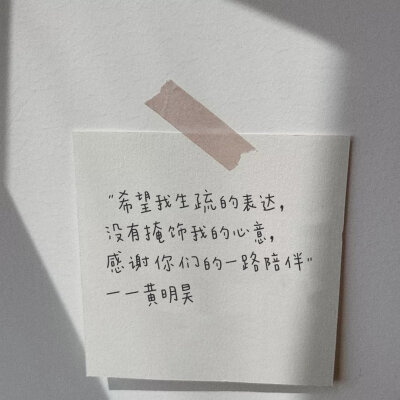 “希望我生疏的表达,
没有掩饰我的心意,
感谢你们的一路陪伴”
一一黄明昊